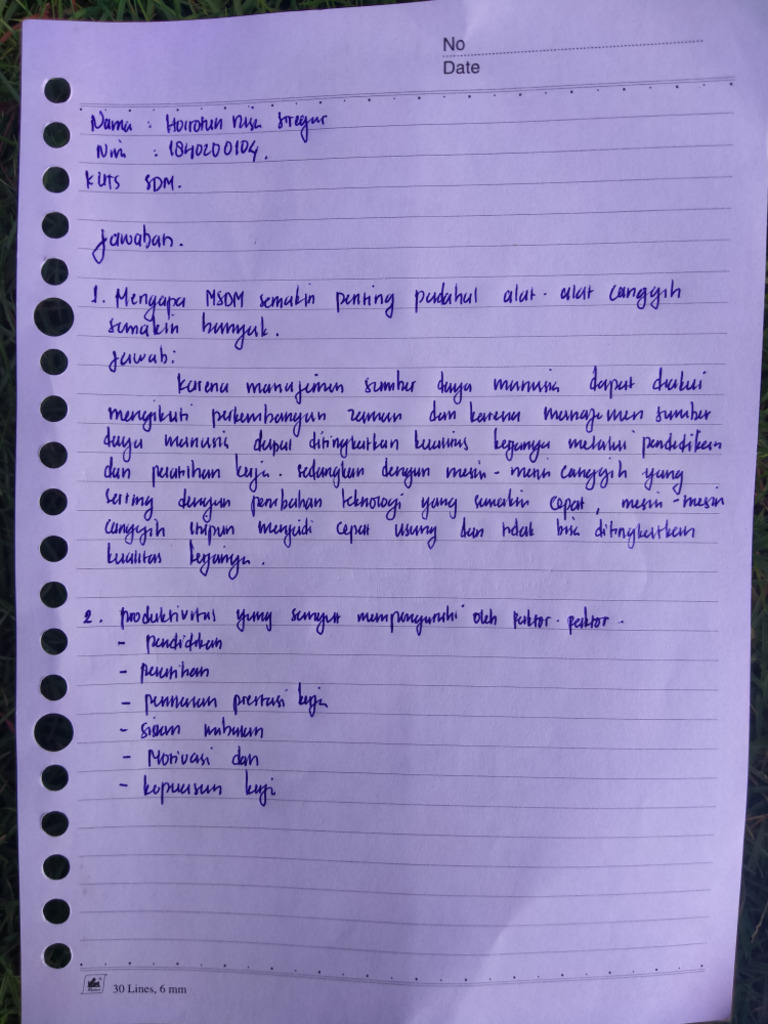 No
Date
Nama : Hoirotun Nisa Siregar
Nim : 1840200104.
KUTS SDM.
Jawaban.
1. Mengapa MSDM semakin penting padahal alat-alat canggih
semakin banyak.
Jawab:
Karena manajemen sumber daya manusia dapat diakui
mengikuti perkembangan zaman dan karena manajemen sumber
daya manusia dapat ditingkatkan kualitas kerjanya melalui pendidikan
dan pelatihan kerja. sedangkan dengan mesin-mesin canggih yang
sering dengan perubahan teknologi yang semakin cepat, mesin-mesin
canggih menjadi cepat usang dan tidak bisa ditingkatkan
kualitas kerjanya.
2. produktivitas yang sangat mempengaruhi oleh faktor-faktor.
- pendidikan
- pelatihan
- penilaian prestasi kerja
- sistem imbalan
- Motivasi dan
- kepuasan kerja
30 Lines, 6 mm